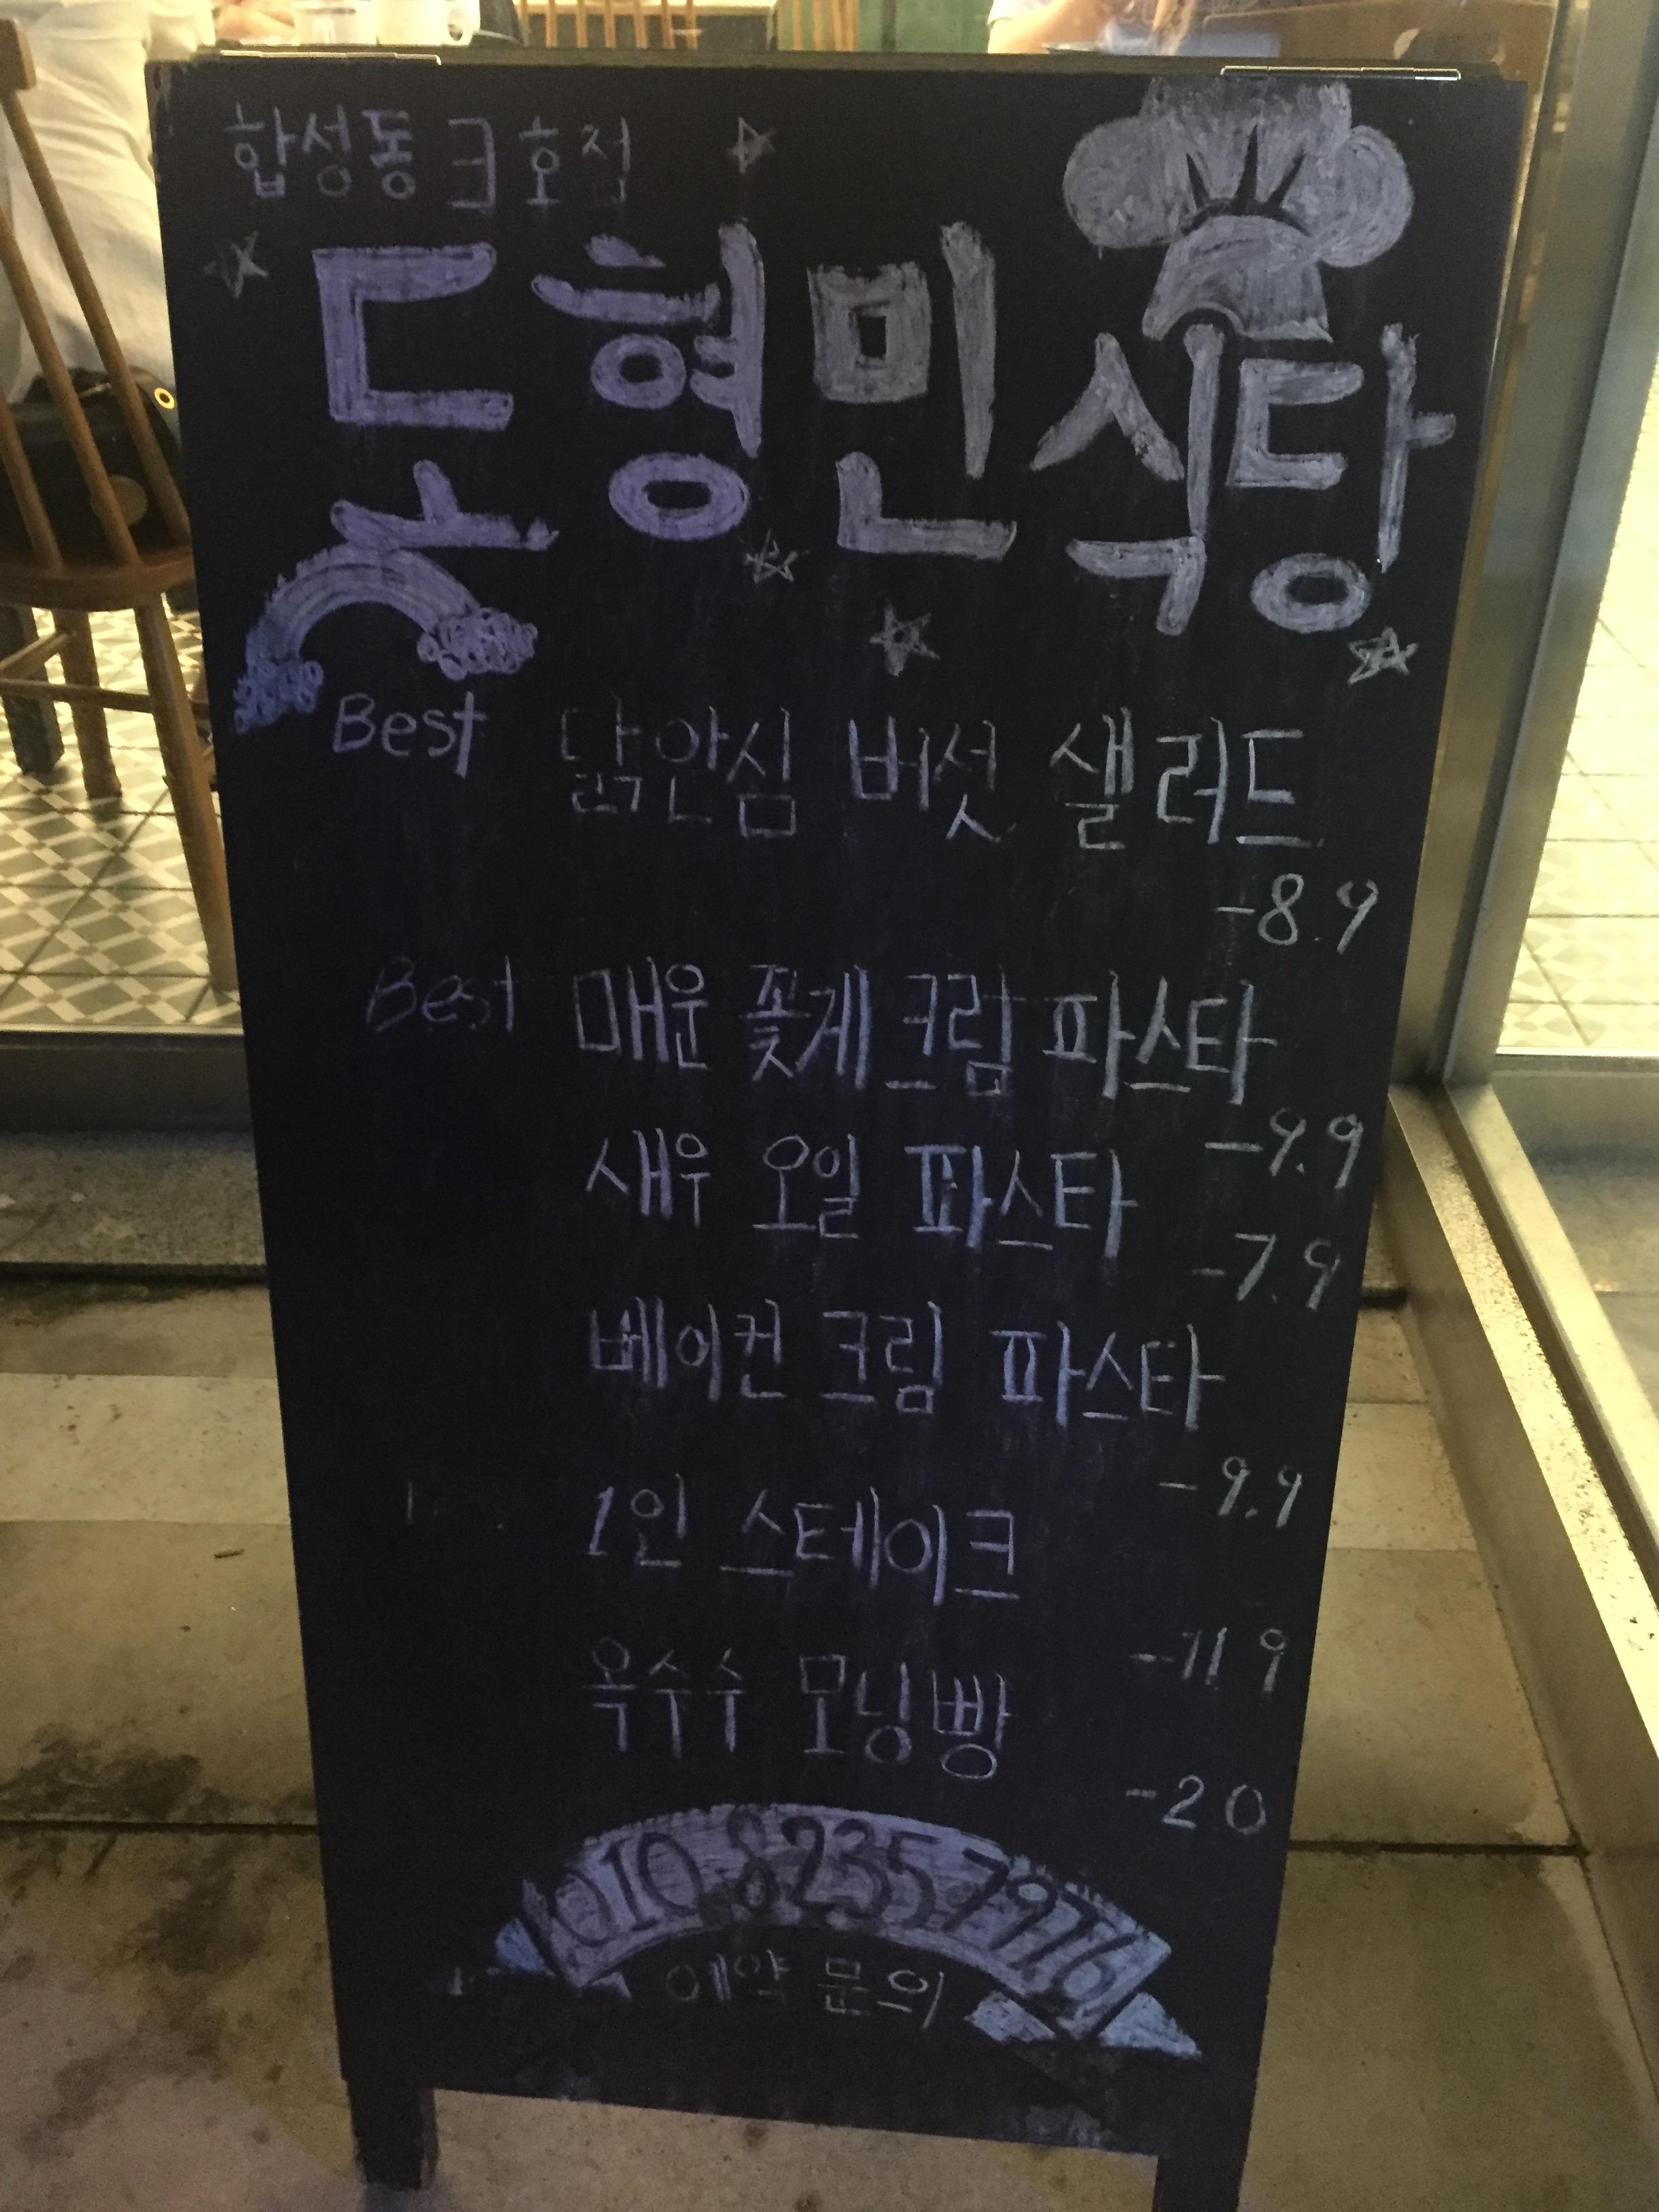 합성동 3호점
도형민식당
Best 닭안심 버섯 샐러드
-8.9
Best 매운 꽃게 크림 파스타
-9.9
새우 오일 파스타
-7.9
베이컨 크림 파스타
-9.9
1인 스테이크
-11.9
옥수수 모닝빵
-2.0
010 8235 7976
예약 문의